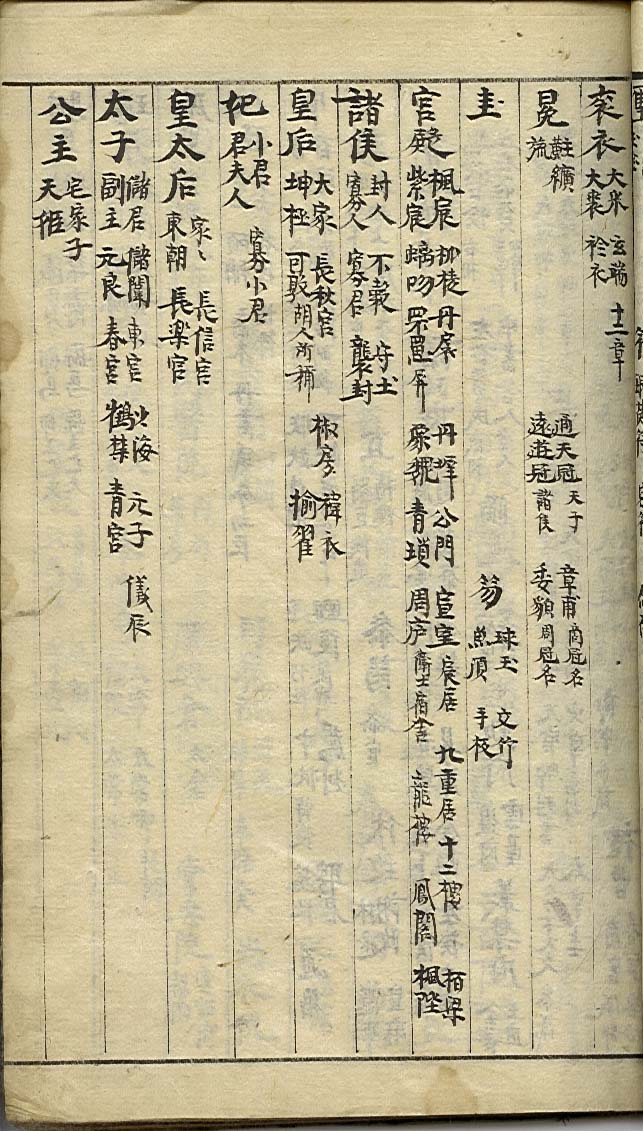 衮衣 大裘 玄端 十二章
大裘 衫衣
冕 黈纊 通天冠天子 章甫商冠名
旒 遠遊冠諸侯 委貌周冠名
圭 笏 球玉 文竹
魚須 手板
宮殿 楓宸 柳棱 丹扆 丹墀 公門 宣室 宸居 九重居 十二樓 栢梁
紫宸 螭吻 罘罳屏 罘罳 青瑣 周庐衛士宿舍 龍樓 鳳閣 楓陛
諸侯 封人 不穀 守土
寡人 寡君 襲封
皇后 大家 長秋宮 椒房 褘衣
坤極 可敦胡人所稱 揄翟
妃 小君 寡小君
君夫人
皇太后 家〻 長信宮
東朝 長楽宮
太子 儲君 儲闈 東宮 少海 元子 儀辰
副主 元良 春宮 鶴禁 青宮
公主 宅家子
天姬